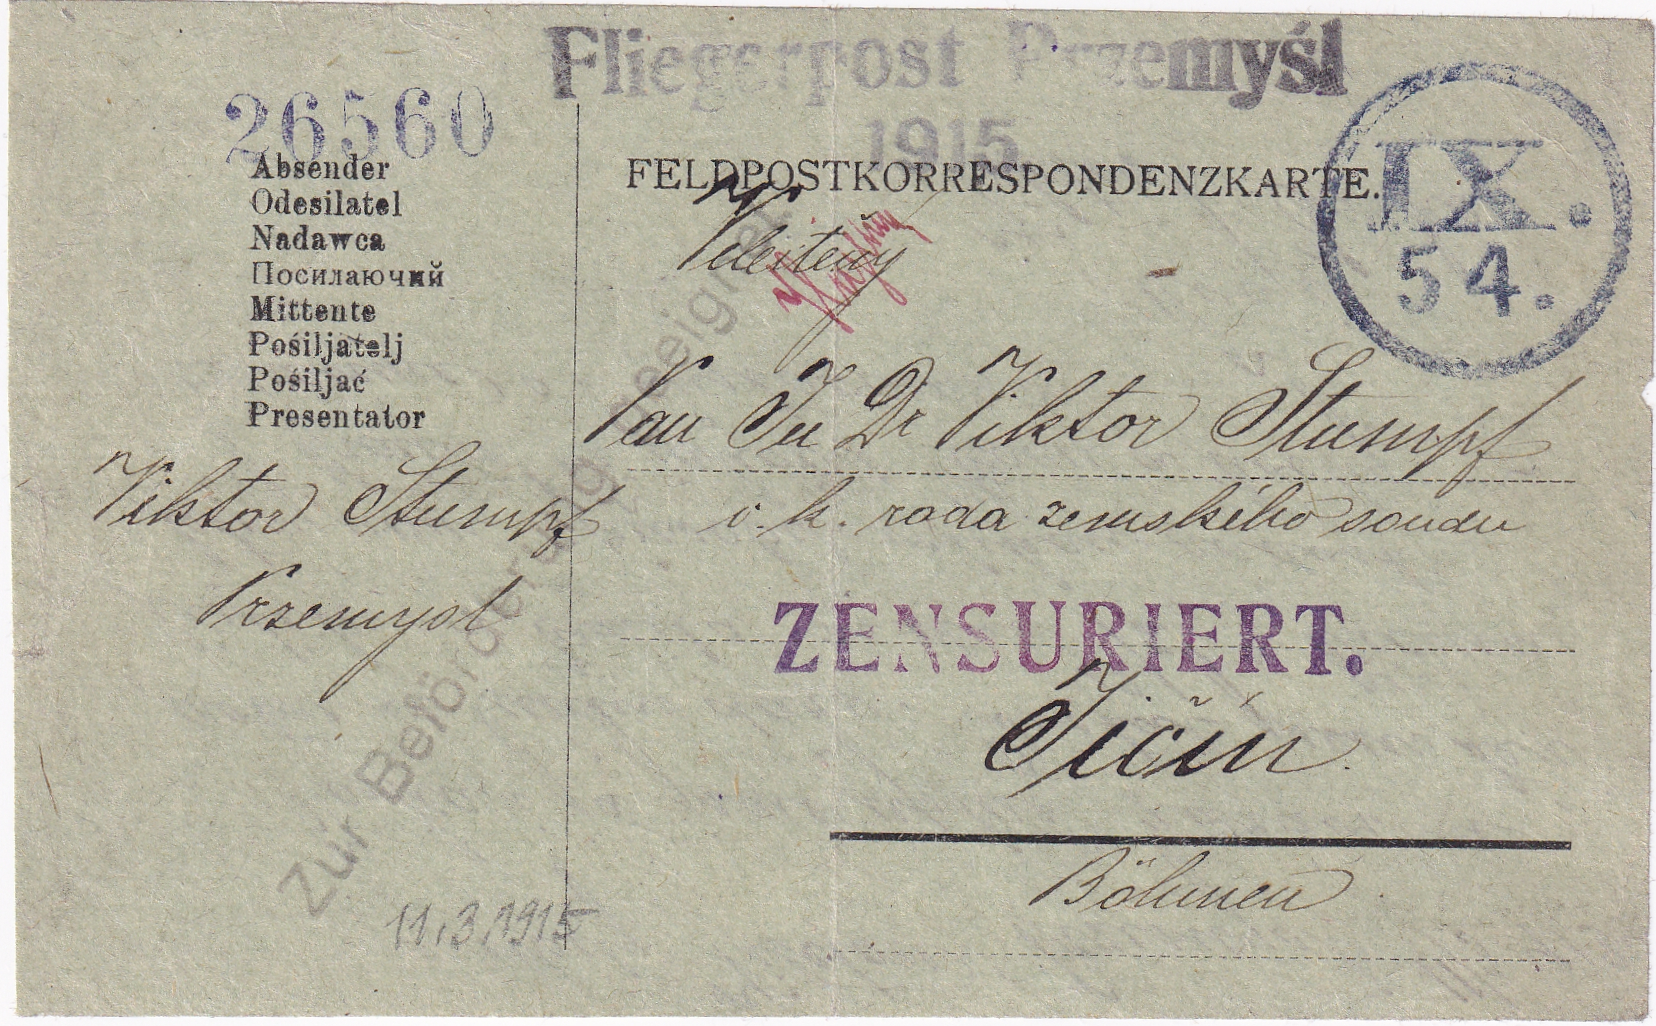 Fliegerpost Przemyśl
1915
26560
FELDPOSTKORRESPONDENZKARTE.
IX.
54.
Absender
Odesilatel
Nadawca
Посилаючий
Mittente
Pošiljatelj
Pošiljač
Presentator
Viktor Stumpf
Przemysl
Zur Beförderung geeignet
11.3.1915
Velectěný
Pan JU Dr Viktor Stumpf
c. k. rada zemského soudu
ZENSURIERT.
Jičín
Böhmen